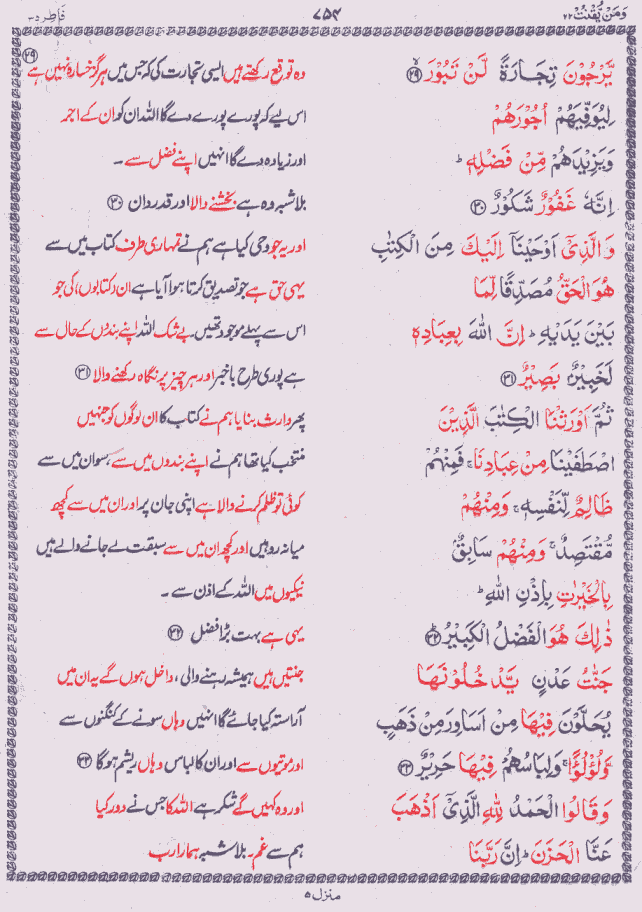 وَمَنْ يَّقْنُتْ ٢٢
٧٥٤
فَاطِر ٣٥
يَّرْجُوْنَ تِجَارَةً لَّنْ تَبُوْرَ ۙ﴿٢٩﴾
وہ توقع رکھتے ہیں ایسی تجارت کی کہ جس میں ہرگز خسارہ نہیں ہے ﴿٢٩﴾
لِيُوَفِّيَهُمْ اُجُوْرَهُمْ
اس لیے کہ پورے پورے دے گا اللہ ان کو ان کے اجر
وَيَزِيْدَهُمْ مِّنْ فَضْلِهٖ ؕ
اور زیادہ دے گا انہیں اپنے فضل سے ۔
اِنَّهٗ غَفُوْرٌ شَكُوْرٌ ﴿٣٠﴾
بلاشبہ وہ ہے بخشنے والا اور قدردان ﴿٣٠﴾
وَالَّذِىْۤ اَوْحَيْنَاۤ اِلَيْكَ مِنَ الْكِتٰبِ
اور یہ جو وحی کیا ہے ہم نے تمہاری طرف کتاب میں سے
هُوَ الْحَقُّ مُصَدِّقًا لِّمَا
یہی حق ہے جو تصدیق کرتا ہوا آیا ہے ان (کتابوں) کی جو
بَيْنَ يَدَيْهِ ؕ اِنَّ اللّٰهَ بِعِبَادِهٖ
اس سے پہلے موجود تھیں۔ بے شک اللہ اپنے بندوں کے حال سے
لَخَبِيْرٌۢ بَصِيْرٌ ﴿٣١﴾
ہے پوری طرح باخبر اور ہر چیز پر نگاہ رکھنے والا ﴿٣١﴾
ثُمَّ اَوْرَثْنَا الْكِتٰبَ الَّذِيْنَ
پھر وارث بنایا ہم نے کتاب کا ان لوگوں کو جنہیں
اصْطَفَيْنَا مِنْ عِبَادِنَا ۚ فَمِنْهُمْ
منتخب کیا تھا ہم نے اپنے بندوں میں سے، سو ان میں سے
ظَالِمٌ لِّنَفْسِهٖ ۚ وَمِنْهُمْ
کوئی تو ظلم کرنے والا ہے اپنی جان پر اور ان میں سے کچھ
مُّقْتَصِدٌ ۚ وَمِنْهُمْ سَابِقٌۢ
میانہ رو ہیں اور کچھ ان میں سے سبقت لے جانے والے ہیں
بِالْخَيْرٰتِ بِاِذْنِ اللّٰهِ ؕ
نیکیوں میں اللہ کے اذن سے ۔
ذٰلِكَ هُوَ الْفَضْلُ الْكَبِيْرُ ؕ﴿٣٢﴾
یہی ہے بہت بڑا فضل ﴿٣٢﴾
جَنّٰتُ عَدْنٍ يَّدْخُلُوْنَهَا
جنتیں ہیں ہمیشہ رہنے والی، داخل ہوں گے یہ ان میں
يُحَلَّوْنَ فِيْهَا مِنْ اَسَاوِرَ مِنْ ذَهَبٍ
آراستہ کیا جائے گا انہیں وہاں سونے کے کنگنوں سے
وَّلُؤْلُؤًا ۚ وَلِبَاسُهُمْ فِيْهَا حَرِيْرٌ ﴿٣٣﴾
اور موتیوں سے اور ان کا لباس وہاں ریشم ہوگا ﴿٣٣﴾
وَقَالُوا الْحَمْدُ لِلّٰهِ الَّذِىْۤ اَذْهَبَ
اور وہ کہیں گے شکر ہے اللہ کا جس نے دور کیا
عَنَّا الْحَزَنَ ؕ اِنَّ رَبَّنَا
ہم سے غم۔ بلاشبہ ہمارا رب
منزل ٥